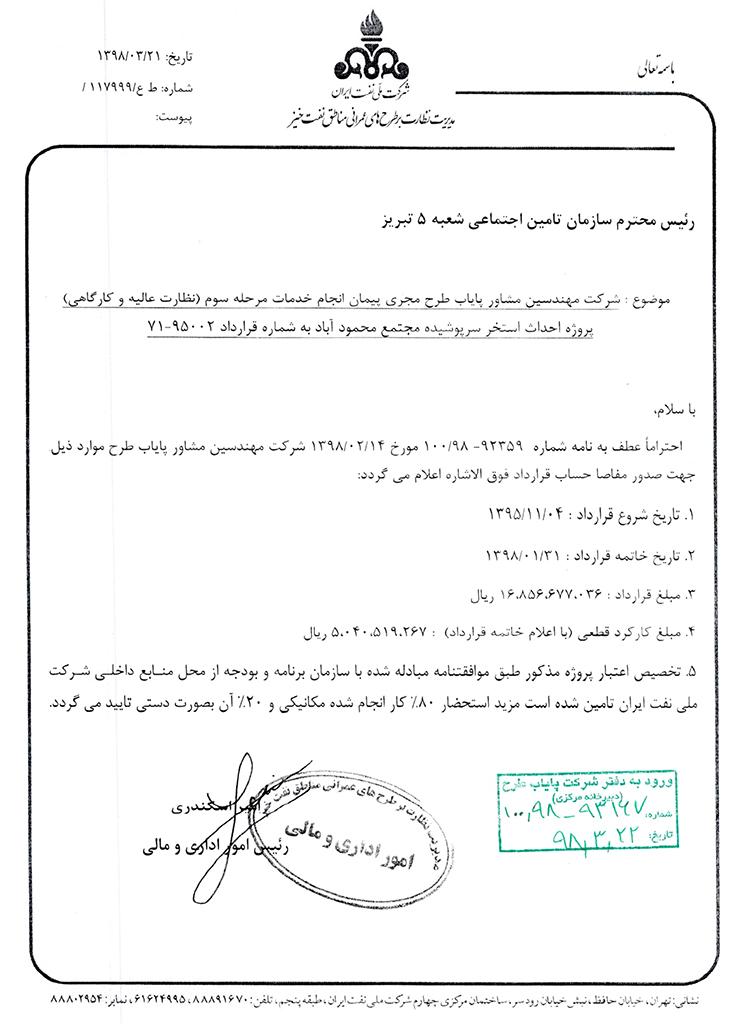 باسمه تعالی
شرکت ملی نفت ایران
مدیریت نظارت بر طرح های عمرانی مناطق نفت خیز
تاریخ: ۱۳۹۸/۰۳/۲۱
شماره: ط ع/۱۱۷۹۹۹ /
پیوست:
رئیس محترم سازمان تامین اجتماعی شعبه ۵ تبریز
موضوع : شرکت مهندسین مشاور پایاب طرح مجری پیمان انجام خدمات مرحله سوم (نظارت عالیه و کارگاهی)
پروژه احداث استخر سرپوشیده مجتمع محمود آباد به شماره قرارداد ۹۵۰۰۲-۷۱
با سلام,
احتراماً عطف به نامه شماره ۹۲۳۵۹- ۱۰۰/۹۸ مورخ ۱۳۹۸/۰۲/۱۴ شرکت مهندسین مشاور پایاب طرح موارد ذیل
جهت صدور مفاصا حساب قرارداد فوق الاشاره اعلام می گردد:
۱. تاریخ شروع قرارداد : ۱۳۹۵/۱۱/۰۴
۲. تاریخ خاتمه قرارداد : ۱۳۹۸/۰۱/۳۱
۳. مبلغ قرارداد : ۱۶،۸۵۶،۶۷۷،۰۳۶ ریال
۴. مبلغ کارکرد قطعی (با اعلام خاتمه قرارداد) : ۵،۰۴۰،۵۱۹،۲۶۷ ریال
۵. تخصیص اعتبار پروژه مذکور طبق موافقتنامه مبادله شده با سازمان برنامه و بودجه از محل منابع داخلی شرکت
ملی نفت ایران تامین شده است مزید استحضار ۸۰٪ کار انجام شده مکانیکی و ۲۰٪ آن بصورت دستی تایید می گردد.
امیر اسکندری
رئیس امور اداری و مالی
مدیریت نظارت بر طرح های عمرانی مناطق نفت خیز
امور اداری و مالی
ورود به دفتر شرکت پایاب طرح
(دبیرخانه مرکزی)
شماره: ۱۰۰,۹۸-۹۳۱۶۷
تاریخ: ۹۸,۳,۲۲
نشانی: تهران، خیابان حافظ، نبش خیابان رودسر، ساختمان مرکزی چهارم شرکت ملی نفت ایران، طبقه پنجم، تلفن: ۸۸۸۹۱۶۷۰ ، ۶۱۶۲۴۹۹۵ ، نمابر: ۸۸۸۰۲۹۵۴